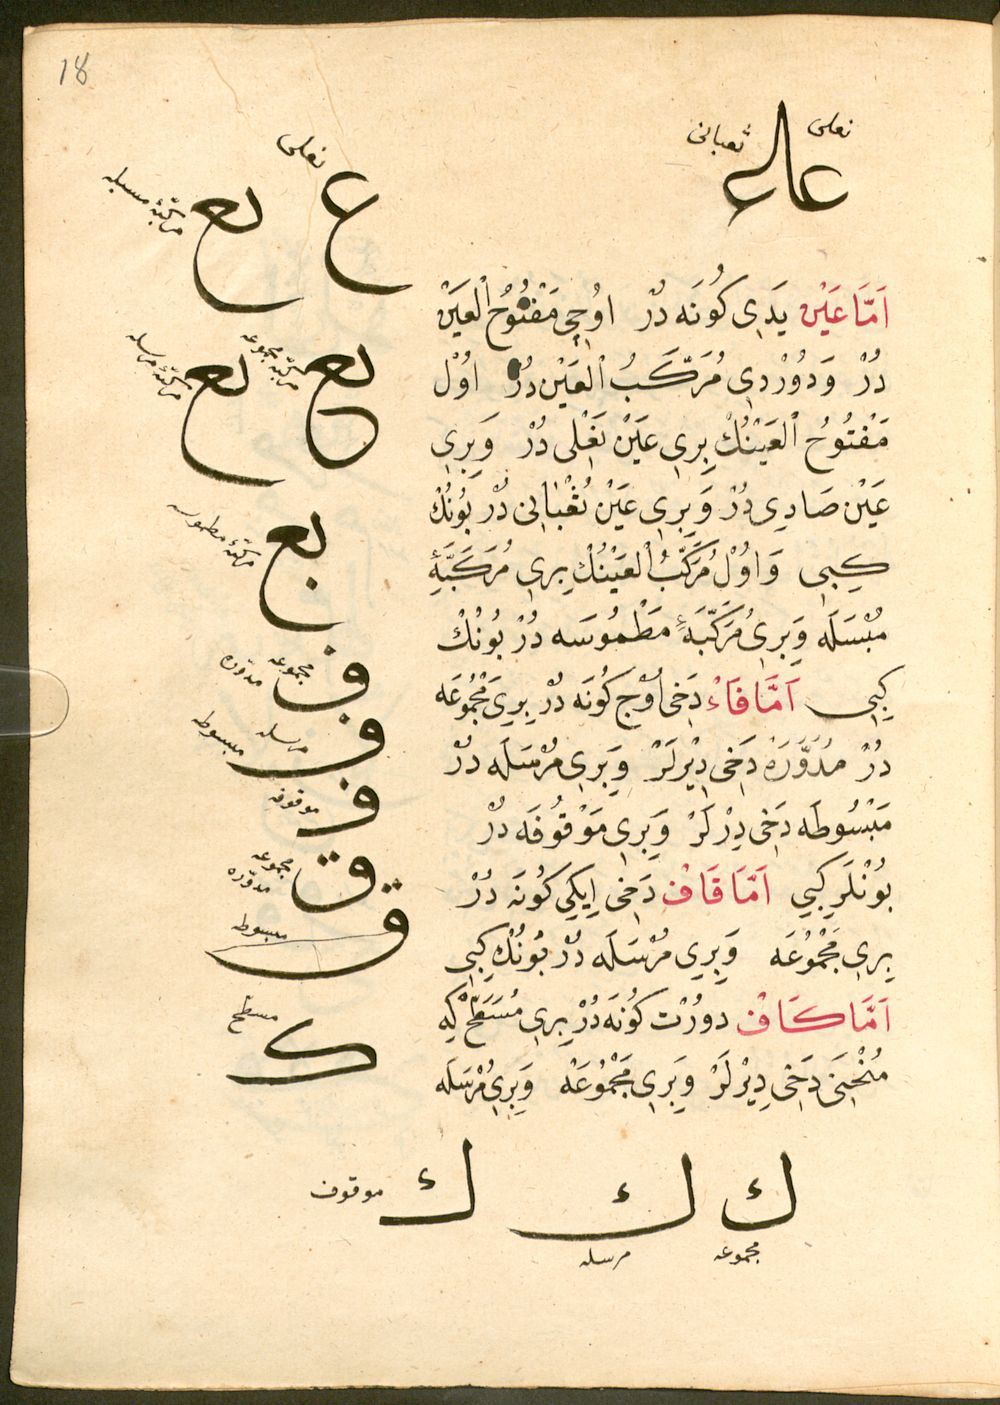 18
نعلى
ثعبانى
عالـ
نعلى
ع
لع
مركبهٔ مسبله
اَمَّا عَيْن يَدِى كُونَه دُرْ اوُچِى مَفْتُوُحُ ٱلْعَيَنْ
دُرْ وَدوُرْدِى مُرَكَّبُ ٱلْعَيَنْ دُرْ اوُلْ
مَفْتُوُحُ ٱلْعَيَنْنُكْ بِرِى عَيَنْ نَعْلِى دُرْ وَبِرِى
عَيَنْ صَادِى دُرْ وَبِرِى عَيَنْ ثُعْبٰانِى دُرْ بُونُكْ
كِبِى وَاوُلْ مُرَكَّبُ ٱلْعَيَنْنُكْ بِرِى مُرَكَّبَهٔ
مُسْبَلَه وَبِرِى مُرَكَّبَهٔ مَطْمُوسَه دُرْ بُونُكْ
كِبِى اَمَّا فَاءْ دَخِى اُوْچ كُونَه دُرْ بِرِى مَجْمُوُعَه
دُرْ مُدَوَّرَهْ دَخِى دِيْرلَرْ وَبِرِى مُرْسَلَه دُرْ
مَبْسُوطَه دَخِى دِرْلَرْ وَبِرِى مَوْقُوفَه دُرْ
بُونْلَرِ كِبِى اَمَّا قَافْ دَخِى اِيكِى كُونَه دُرْ
بِرِى مَجْمُوُعَه وَبِرِى مُرْسَلَه دُرْ بُونُكْ كِبِى
اَمَّا كَافْ دوُرْت كُونَه دُرْ بِرِى مُسَطَّحْ كِه
مُنْحَنِى دَخِى دِيْرلَرْ وَبِرِى مَجْمُوُعَهْ وَبِرِى مُرْسَلَه
مركبهٔ مجموعه
لع
مركبهٔ مرسله
لع
مركبهٔ مطموسه
بع
مجموعه
مدوّره
ف
مرسله
مبسوطه
ف
موقوفه
ف
مجموعه
مدوّره
ق
مبسوطه
ق
مسطح
ك
ك
مجموعه
ك
مرسله
ك
موقوف